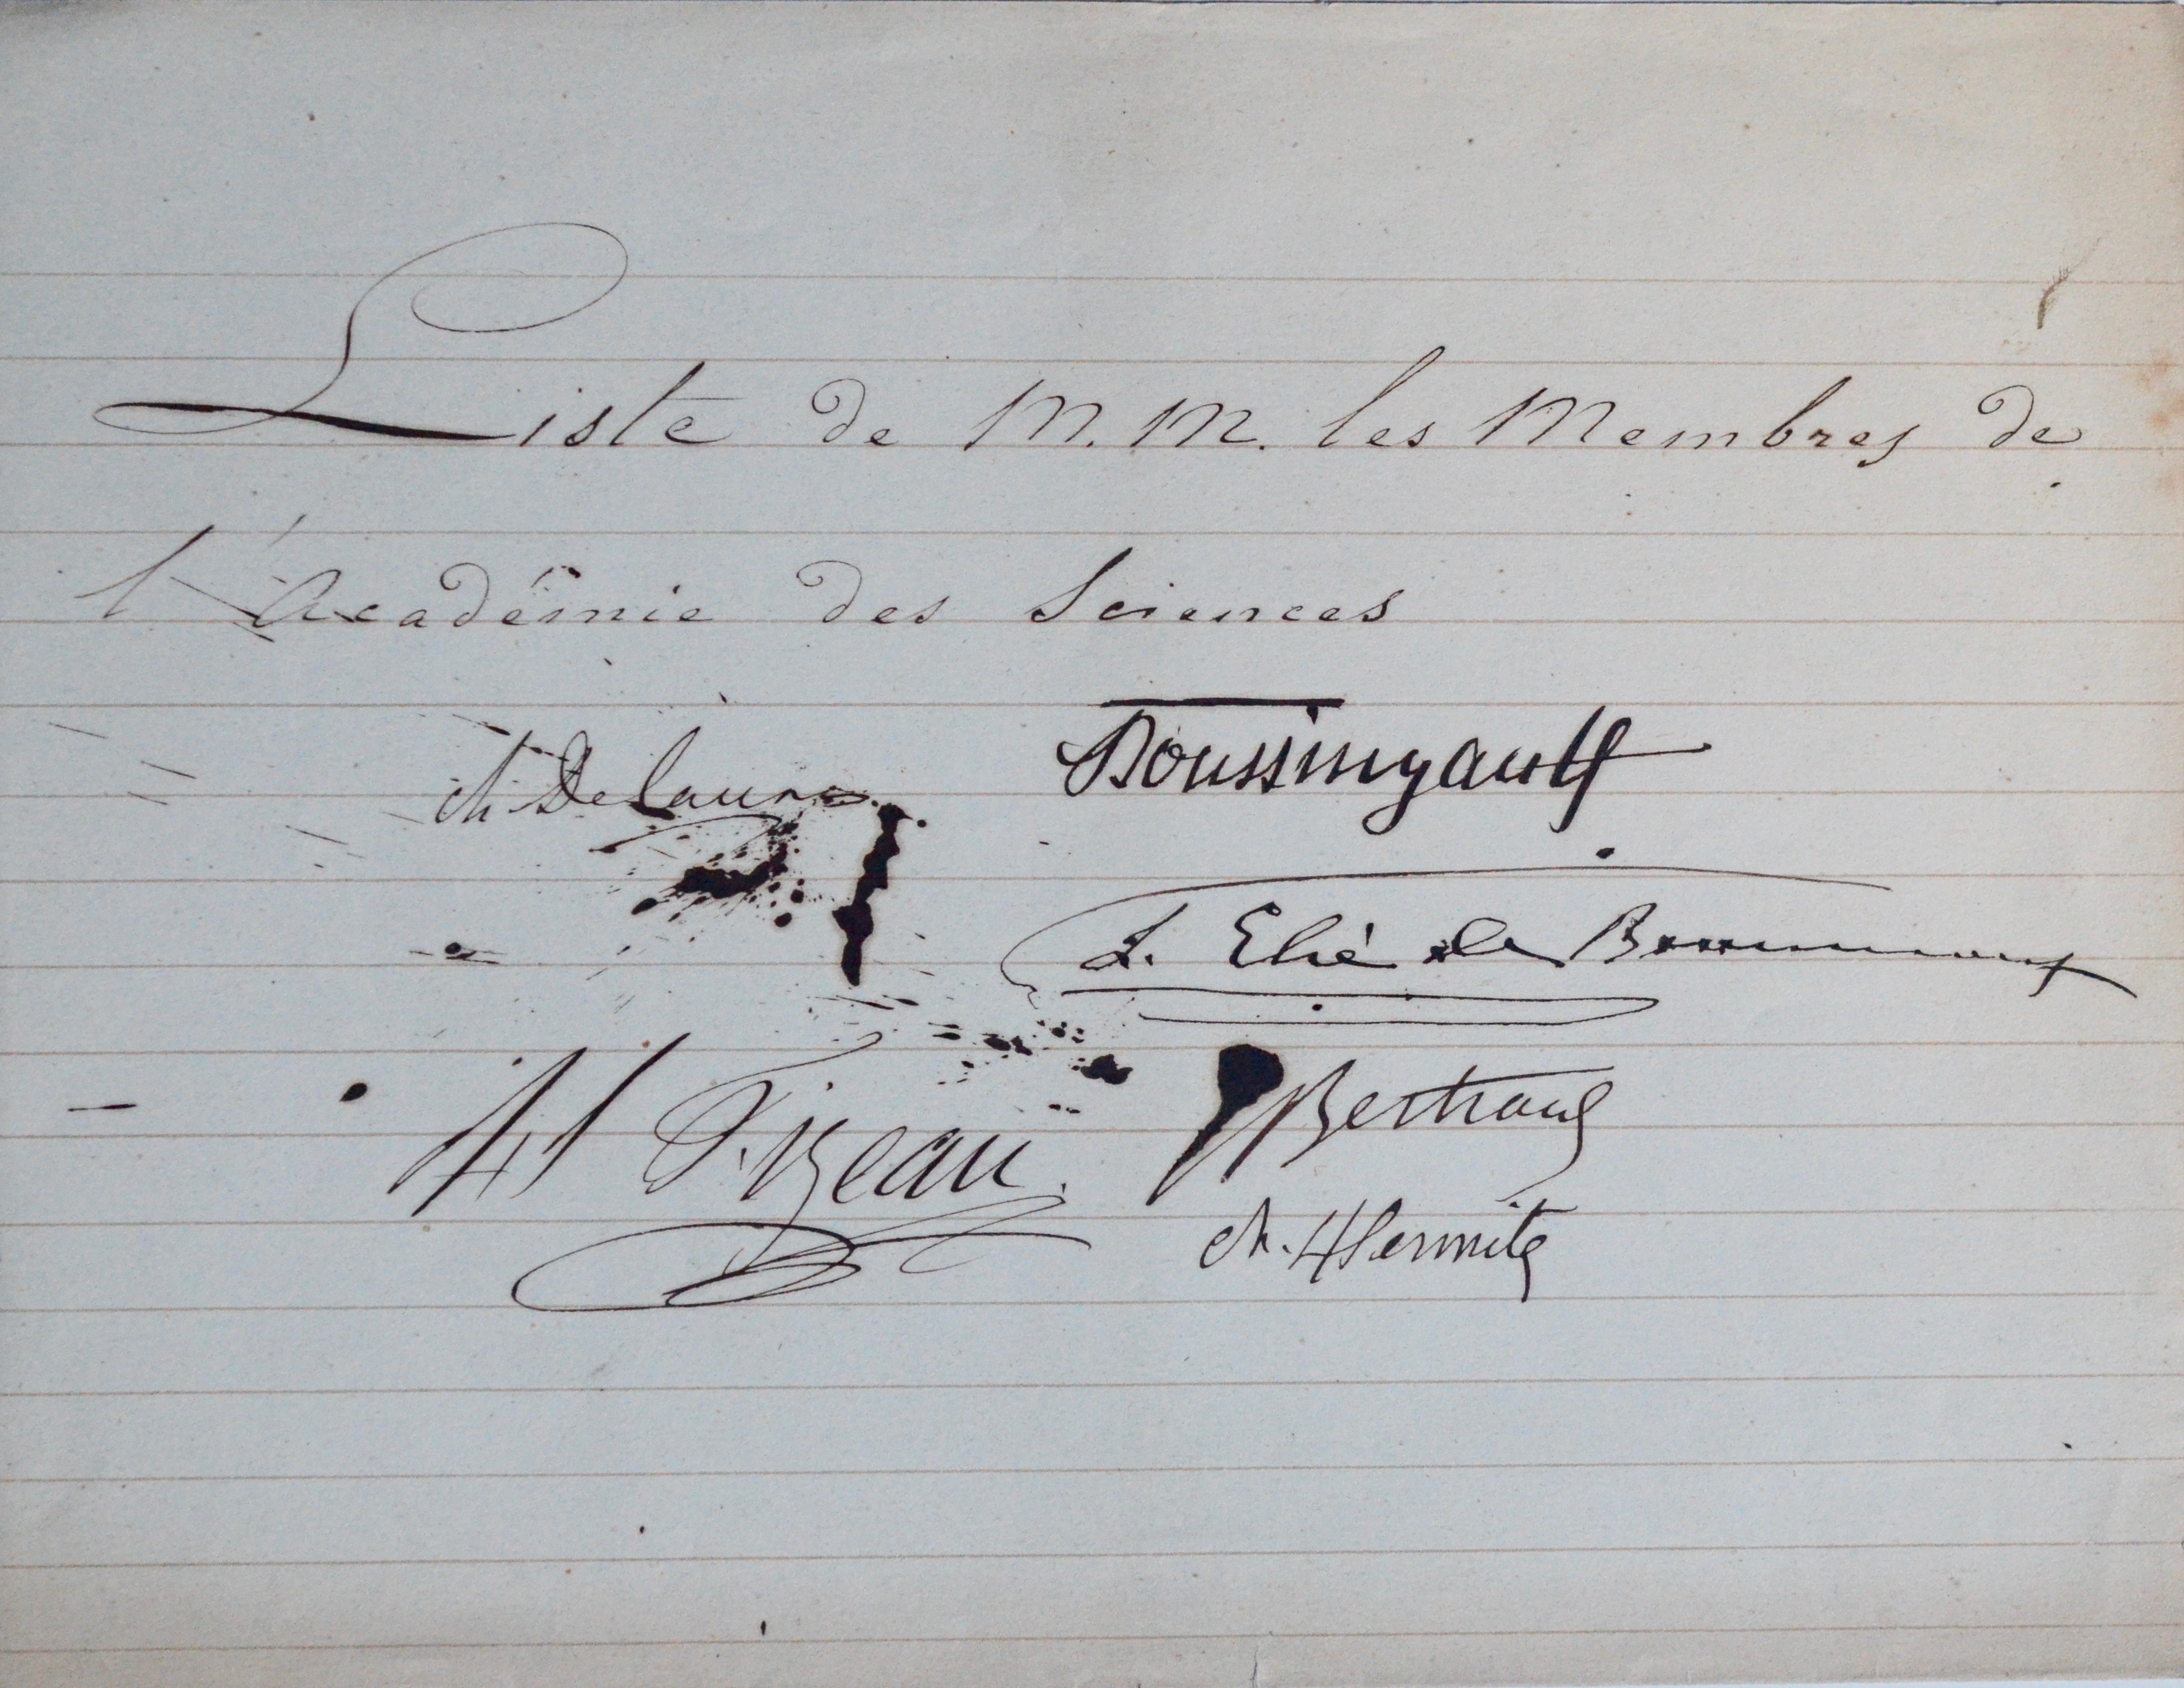 Liste de M.M. les Membres de
l'Académie des Sciences
Ch Delaunay
Boussingault
L. Elie de Beaumont
H Fizeau.
J Bertrand
Ch. Hermite